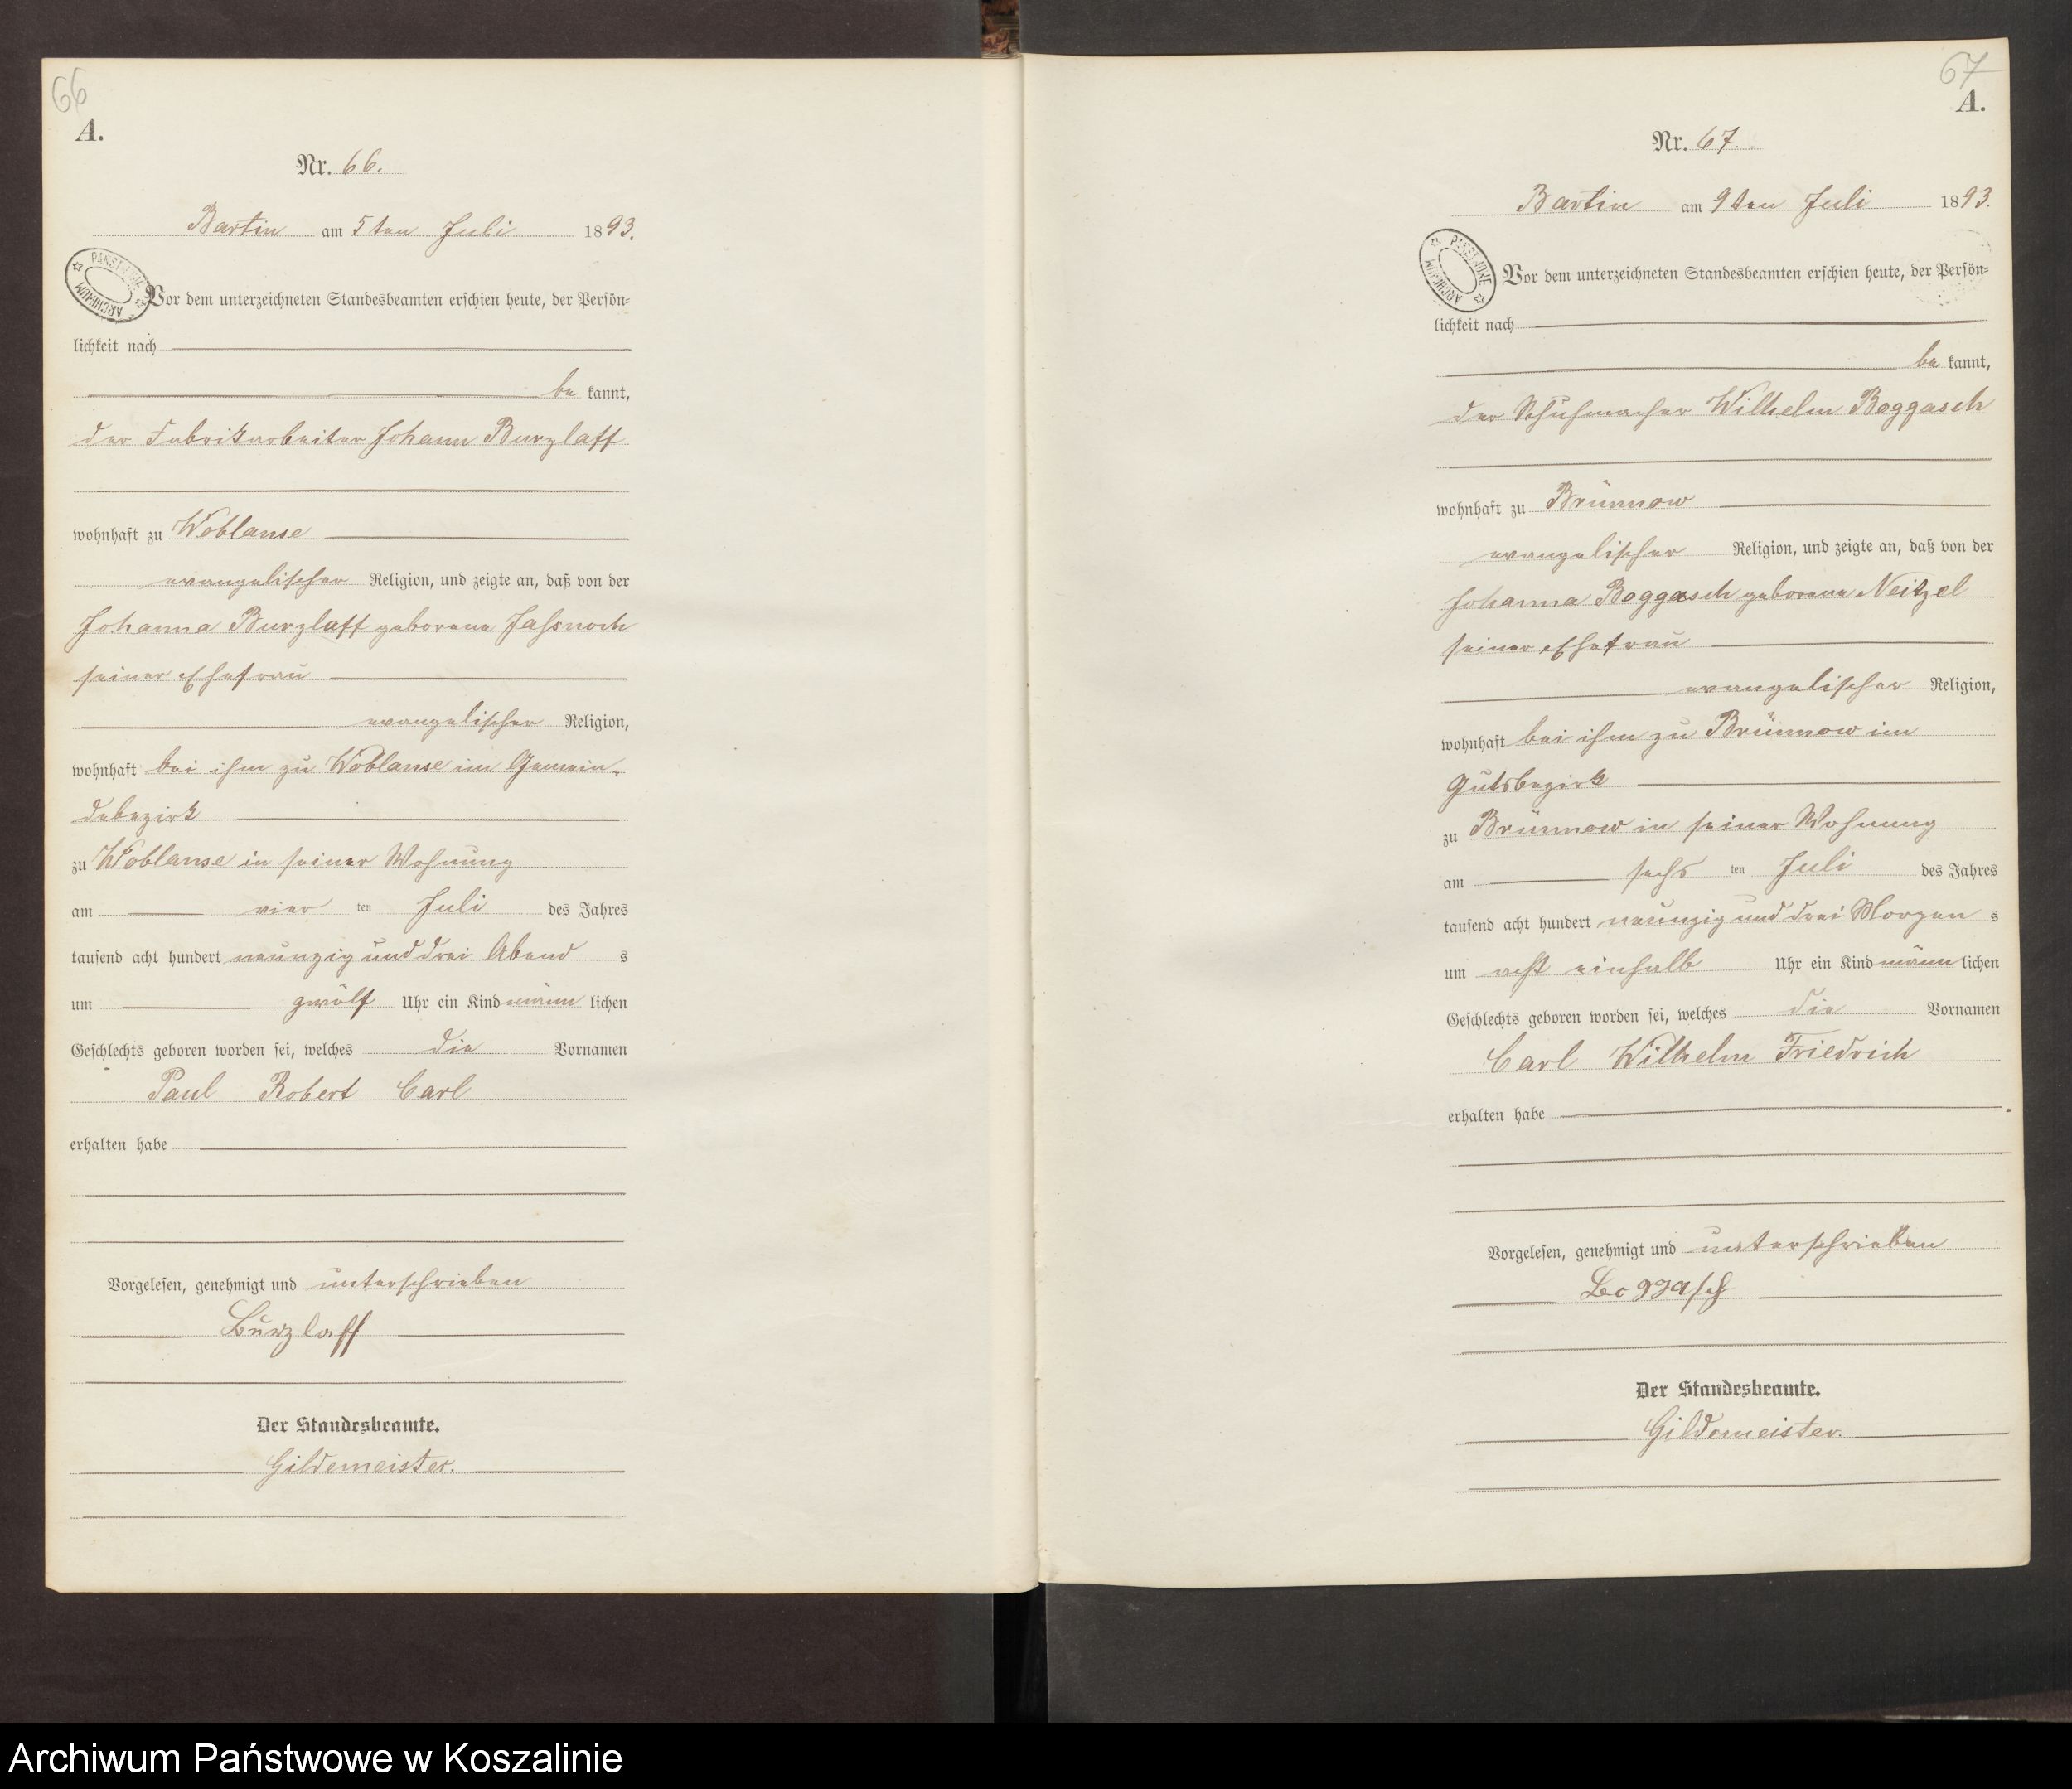 66
A.
Nr. 66.
Bartin am 5ten Juli 1893.
PAŃSTWOWE ARCHIWUM
Vor dem unterzeichneten Standesbeamten erschien heute, der Persön-
lichkeit nach
be kannt,
der Fabrikarbeiter Johann Burzlaff
wohnhaft zu Woblanse
evangelischer Religion, und zeigte an, daß von der
Johanna Burzlaff geborene
seiner Ehefrau
evangelischer Religion,
wohnhaft bei ihm zu Woblanse im Gemein-
debezirk
zu Woblanse in seiner Wohnung
am vier ten Juli des Jahres
tausend acht hundert neunzig und drei Abend s
um zwölf Uhr ein Kind männ lichen
Geschlechts geboren worden sei, welches die Vornamen
Paul Robert Carl
erhalten habe
Vorgelesen, genehmigt und unterschrieben
Burzlaff
Der Standesbeamte.
Gildemeister.
67
A.
Nr. 67.
Bartin am 9ten Juli 1893.
PAŃSTWOWE ARCHIWUM
Vor dem unterzeichneten Standesbeamten erschien heute, der Persön-
lichkeit nach
be kannt,
der Schuhmacher Wilhelm Boggasch
wohnhaft zu Brünnow
evangelischer Religion, und zeigte an, daß von der
Johanna Boggasch geborene Neitzel
seiner Ehefrau
evangelischer Religion,
wohnhaft bei ihm zu Brünnow im
Gutsbezirk
zu Brünnow in seiner Wohnung
am sechs ten Juli des Jahres
tausend acht hundert neunzig und drei Morgen s
um acht einhalb Uhr ein Kind männ lichen
Geschlechts geboren worden sei, welches die Vornamen
Carl Wilhelm Friedrich
erhalten habe
Vorgelesen, genehmigt und unterschrieben
Boggasch
Der Standesbeamte.
Gildemeister.
Archiwum Państwowe w Koszalinie